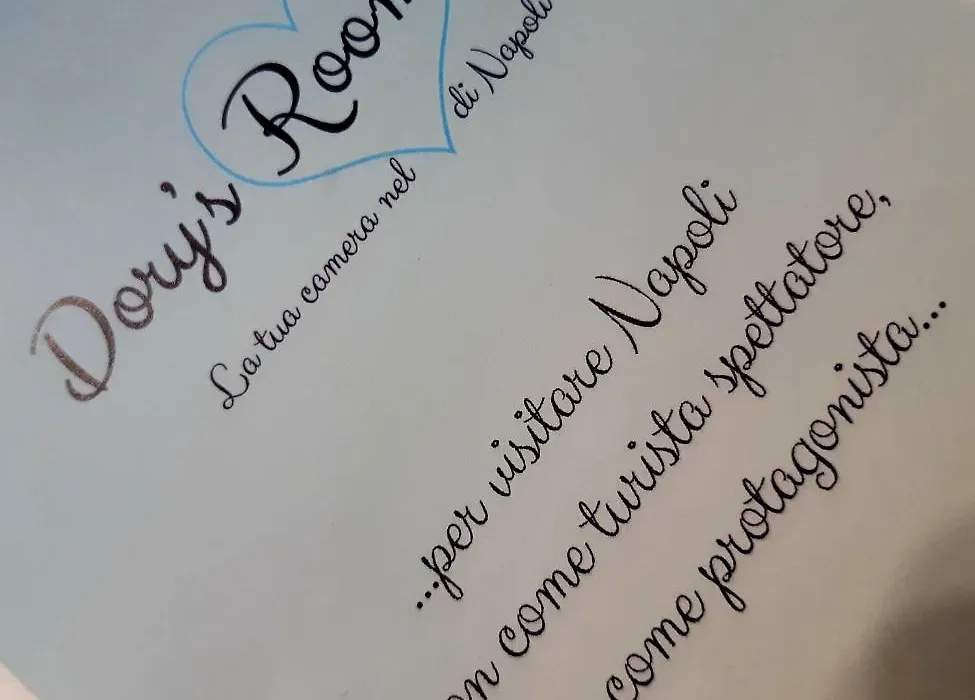 Dory's Room
La tua camera nel di Napoli
...per visitare Napoli
come turista spettatore,
come protagonista...